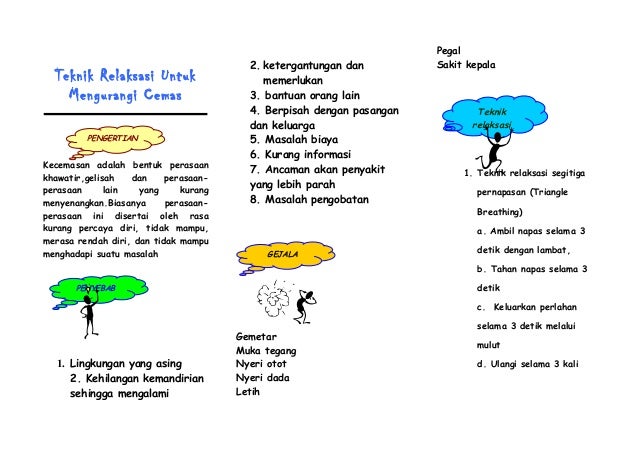 Teknik Relaksasi Untuk
Mengurangi Cemas
PENGERTIAN
Kecemasan adalah bentuk perasaan
khawatir,gelisah dan perasaan-
perasaan lain yang kurang
menyenangkan.Biasanya perasaan-
perasaan ini disertai oleh rasa
kurang percaya diri, tidak mampu,
merasa rendah diri, dan tidak mampu
menghadapi suatu masalah
PENYEBAB
1. Lingkungan yang asing
2. Kehilangan kemandirian
sehingga mengalami
2. ketergantungan dan
memerlukan
3. bantuan orang lain
4. Berpisah dengan pasangan
dan keluarga
5. Masalah biaya
6. Kurang informasi
7. Ancaman akan penyakit
yang lebih parah
8. Masalah pengobatan
GEJALA
Gemetar
Muka tegang
Nyeri otot
Nyeri dada
Letih
Pegal
Sakit kepala
Teknik
relaksasi
1. Teknik relaksasi segitiga
pernapasan (Triangle
Breathing)
a. Ambil napas selama 3
detik dengan lambat,
b. Tahan napas selama 3
detik
c. Keluarkan perlahan
selama 3 detik melalui
mulut
d. Ulangi selama 3 kali